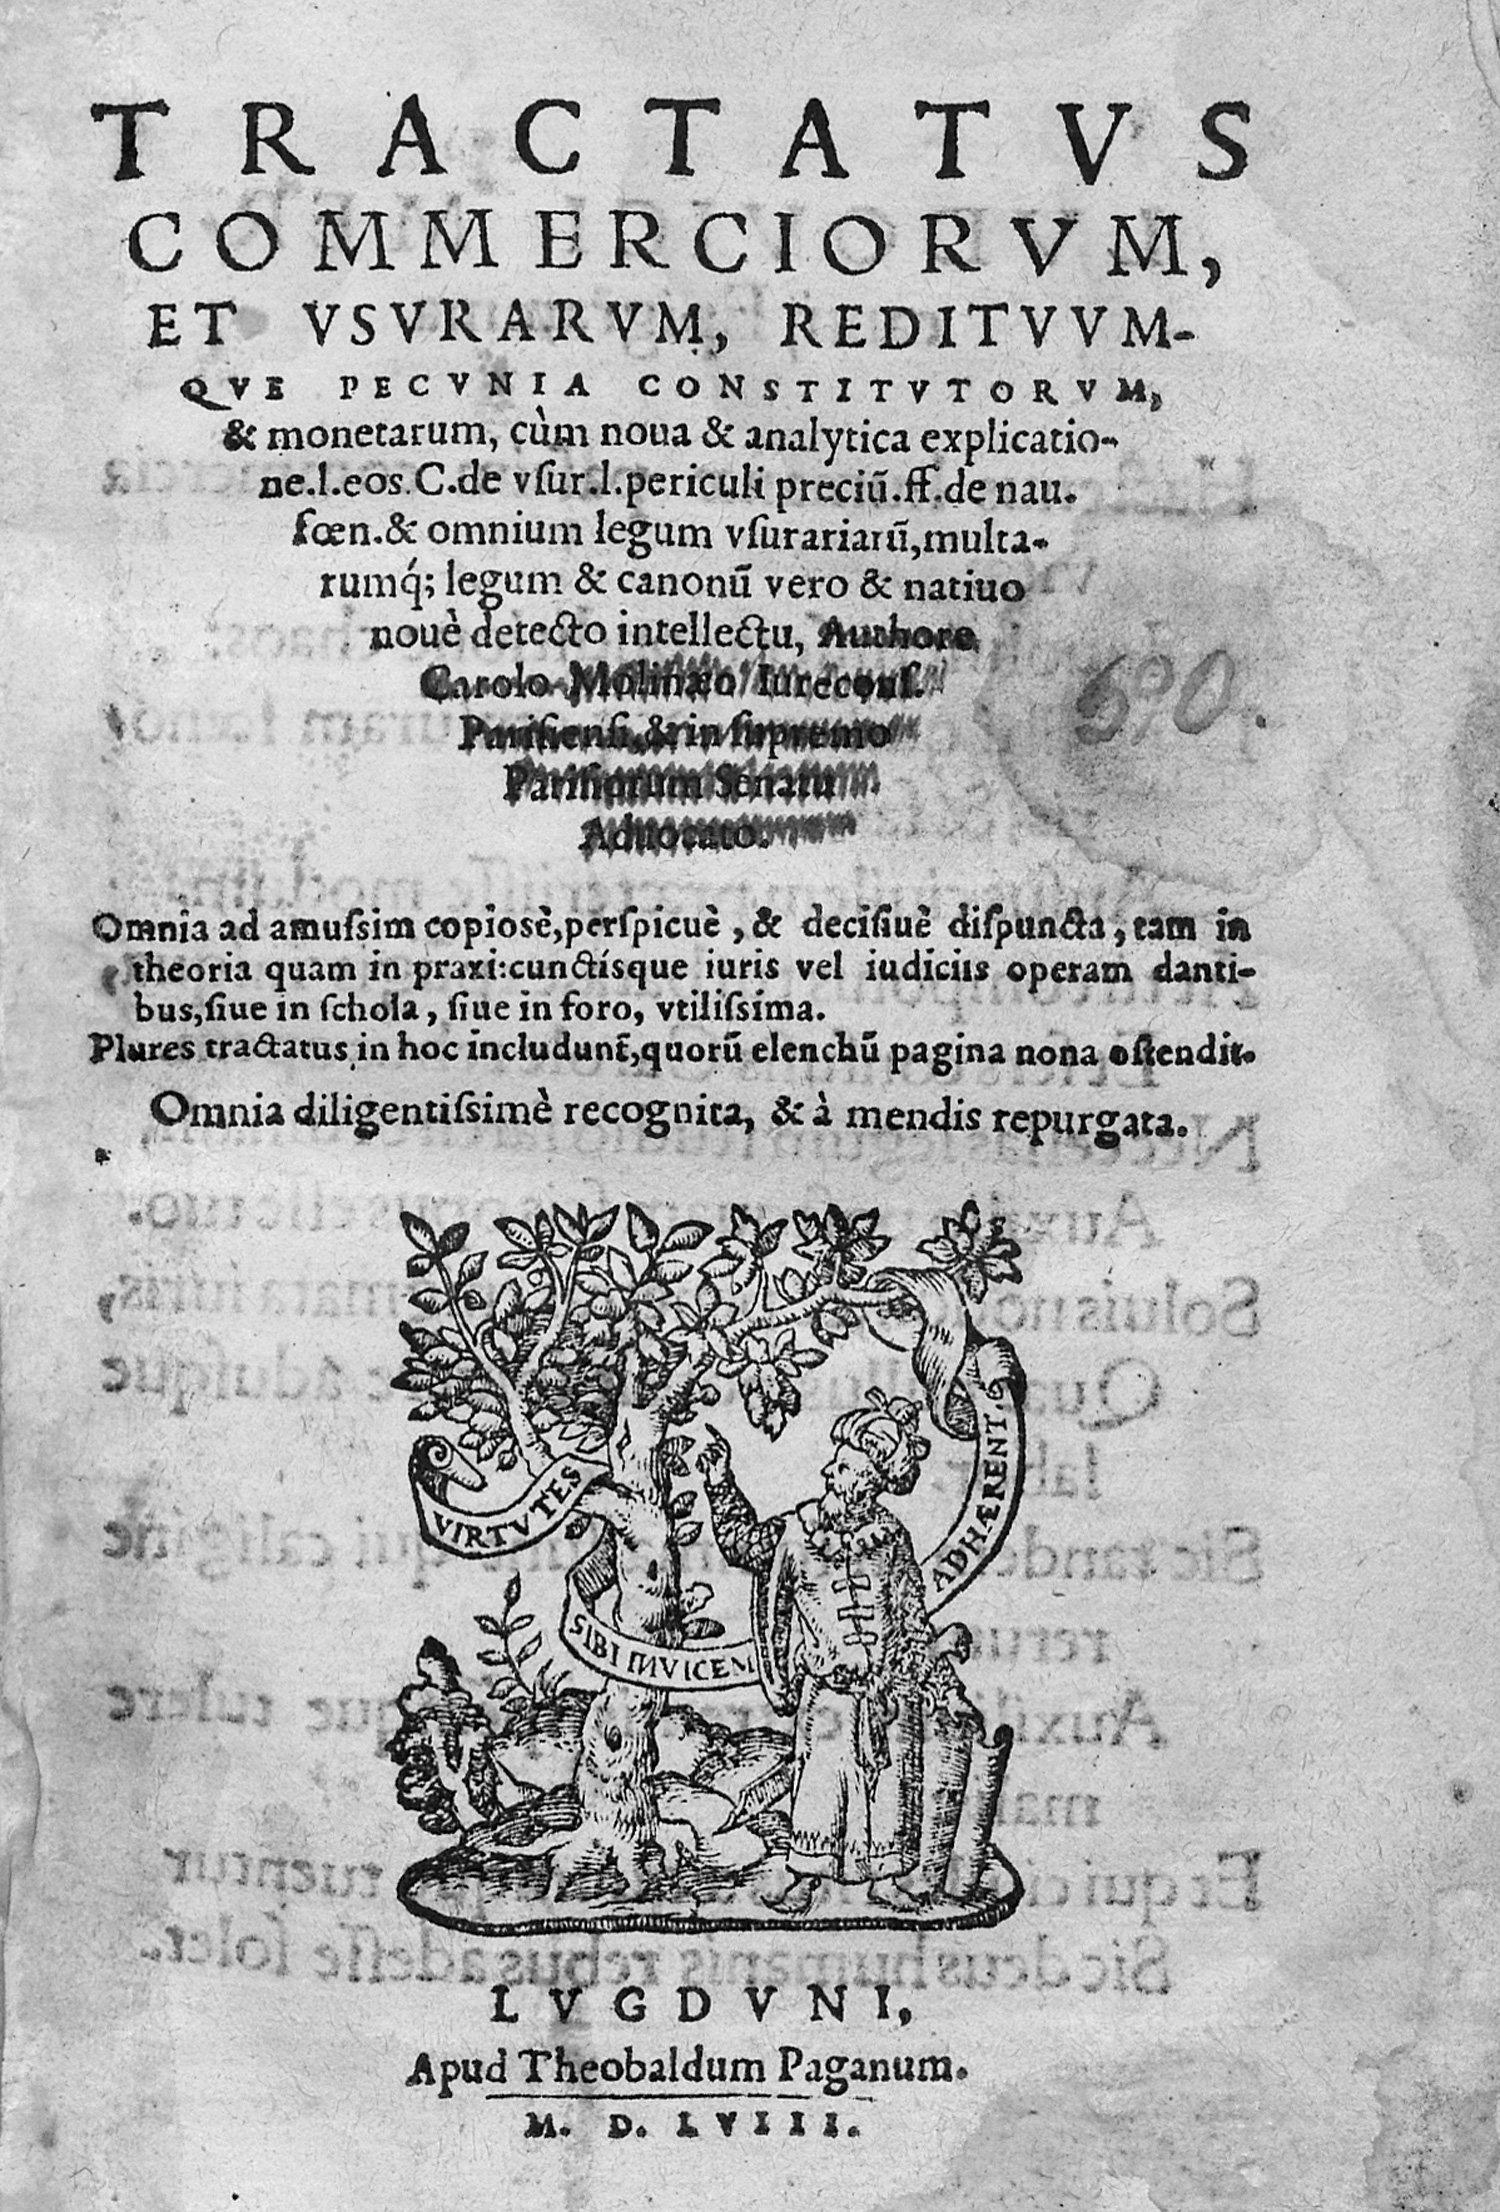 TRACTATVS
COMMERCIORVM,
ET VSVRARVM, REDITVVM-
QVE PECVNIA CONSTITVTORVM,
& monetarum, cùm noua & analytica explicatio-
ne.l.eos.C.de vſur.l.periculi preciū.ff.de nau.
fœn.& omnium legum vſurariarū,multa-
rumq́; legum & canonū vero & natiuo
nouè detecto intellectu, Authore
Carolo Molinæo Iureconſ.
Pariſienſi,& in ſupremo
Pariſiorum Senatu
Aduocato.
690.
Omnia ad amuſsim copiosè,perſpicuè, & deciſiuè diſpuncta, tam in
theoria quam in praxi:cunctíſque iuris vel iudiciis operam danti-
bus,ſiue in ſchola, ſiue in foro, vtiliſsima.
Plures tractatus in hoc includunt̄,quorū elenchū pagina nona oſtendit.
Omnia diligentiſsimè recognita, & à mendis repurgata.
VIRTVTES
SIBI INVICEM
ADHÆRENT.
LVGDVNI,
Apud Theobaldum Paganum.
M. D. LVIII.